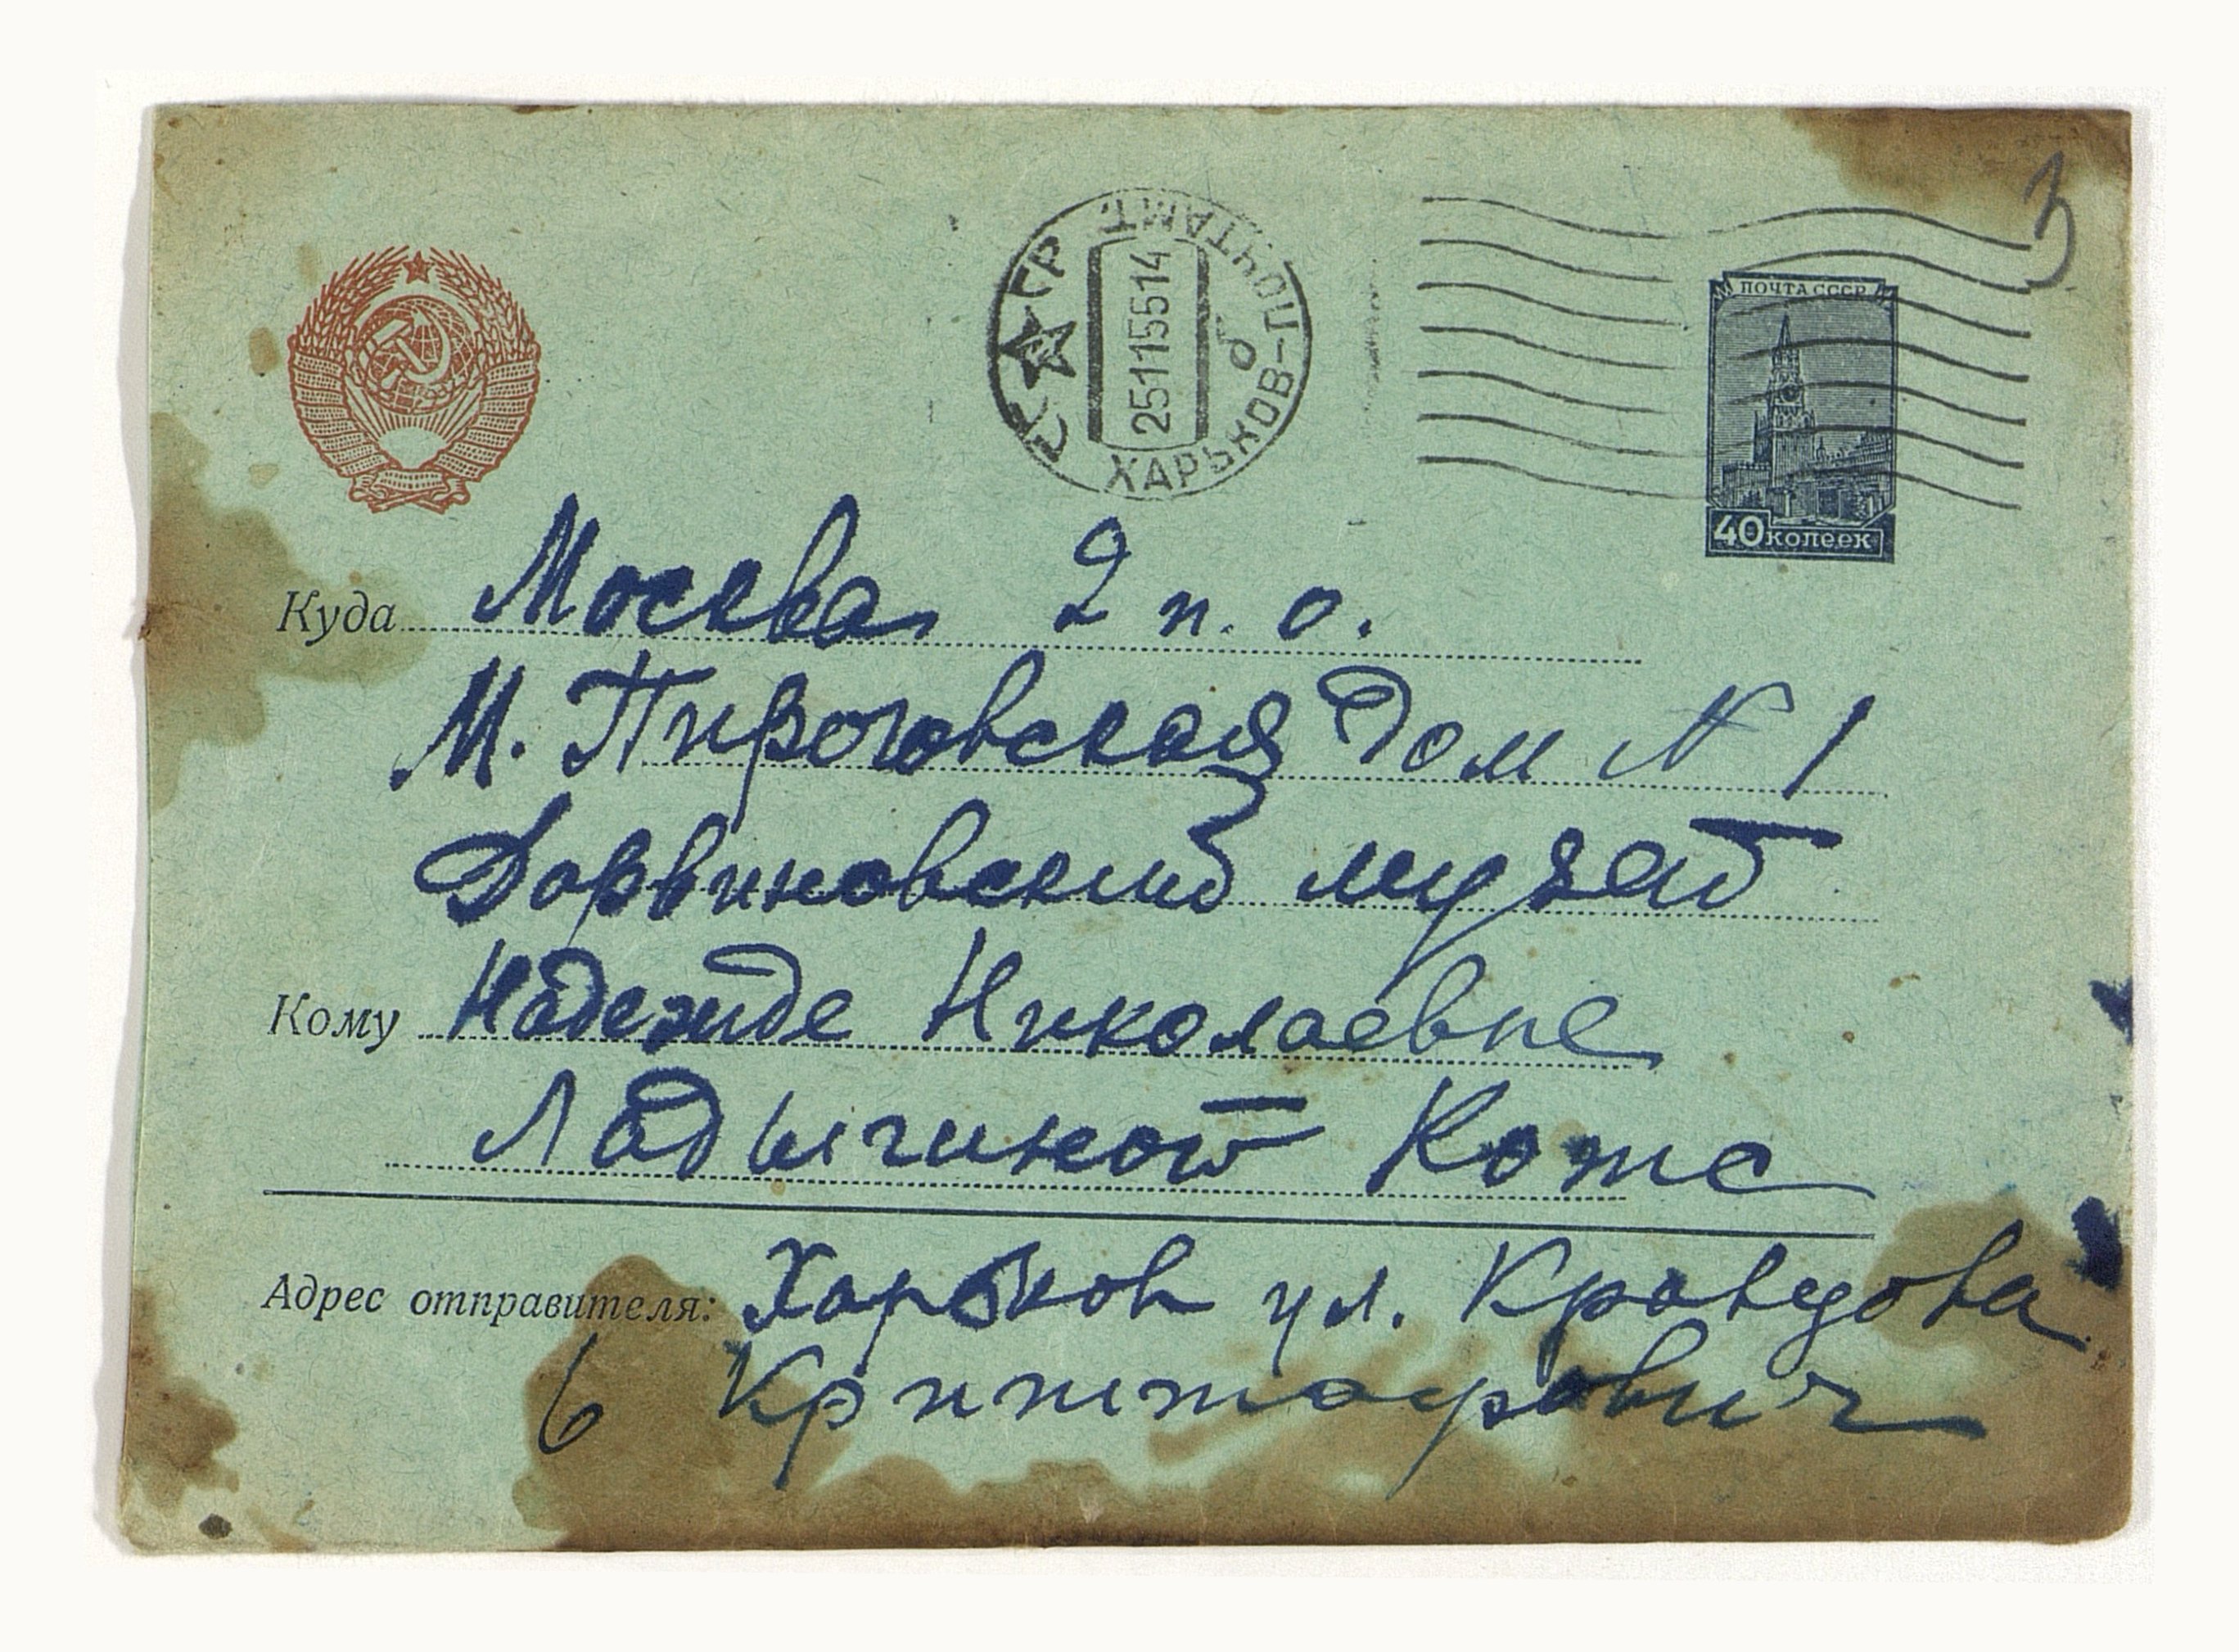 3
СССР
ХАРЬКОВ-ПОЧТАМТ
251155 14
б
ПОЧТА СССР
40 копеек
Куда Москва 2 п. о.
М. Пироговская Дом N 1
Дарвиновский музей
Кому Надежде Николаевне
Ладыгиной Котс
Адрес отправителя: Харьков ул. Кравцова
6 Криштафович